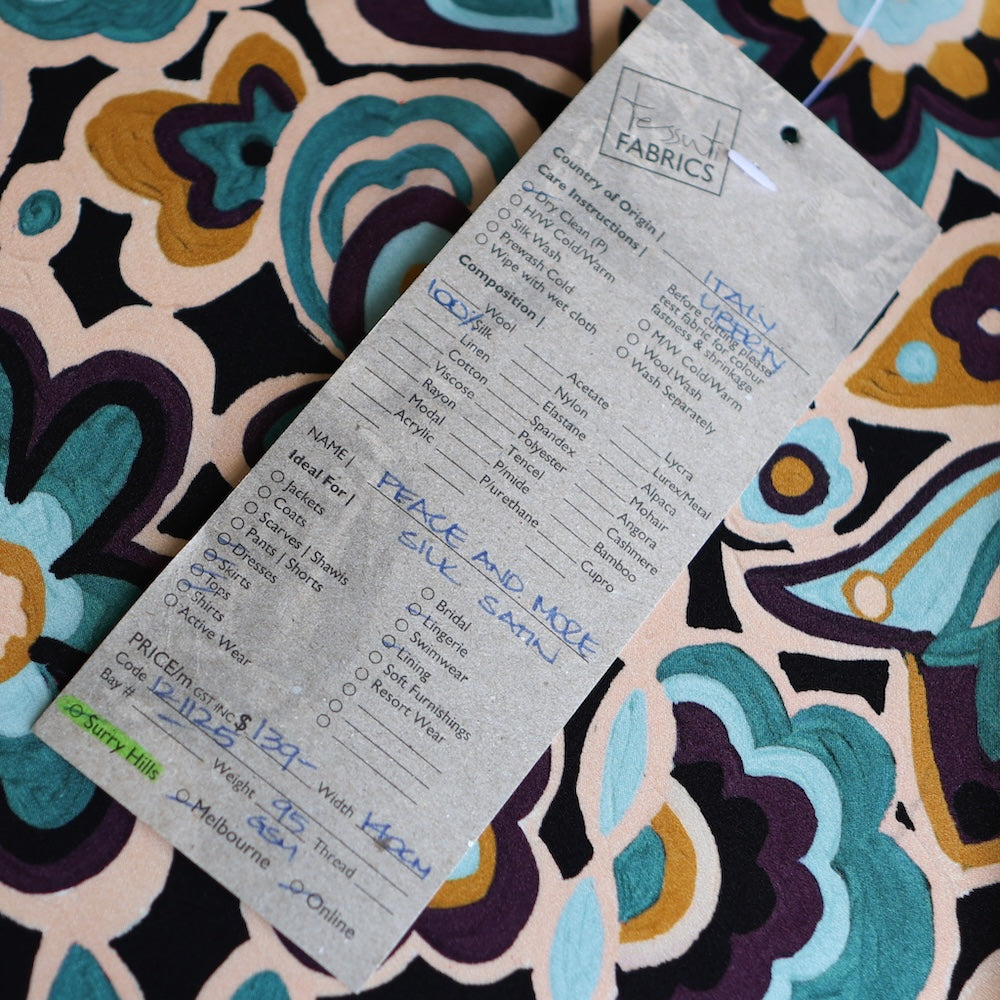 Tessuti
FABRICS
Country of Origin | ITALY
LIBERTY
Care Instructions |
Dry Clean (P)
H/W Cold/Warm
Silk Wash
Prewash Cold
Wipe with wet cloth
Before cutting please
test fabric for colour
fastness & shrinkage
M/W Cold/Warm
Wool Wash
Wash Separately
Composition |
Wool
100% Silk
Linen
Cotton
Viscose
Rayon
Modal
Acrylic
Acetate
Nylon
Elastane
Spandex
Polyester
Tencel
P/mide
P/urethane
Lycra
Lurex/Metal
Alpaca
Mohair
Angora
Cashmere
Bamboo
Cupro
NAME | PEACE AND MORE
SILK SATIN
Ideal For |
Jackets
Coats
Scarves | Shawls
Pants | Shorts
Dresses
Skirts
Tops
Shirts
Active Wear
Bridal
Lingerie
Swimwear
Lining
Soft Furnishings
Resort Wear
PRICE/m GST INC $ 139-
Code 121125
Bay #
Width 140CM
Weight 95
GSM
Thread
Surry Hills
Melbourne
Online